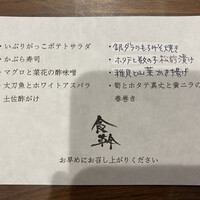 ・いぶりがっこポテトサラダ
・かぶら寿司
・マグロと菜花の酢味噌
・太刀魚とホワイトアスパラ
土佐酢がけ
・銀ダラのもろみそ焼き
・ホタテと数の子 松前漬け
・稚貝と山菜 かき揚げ
・筍とホタテ真丈と黄ニラの
春巻き
食幹
お早めにお召し上がりください